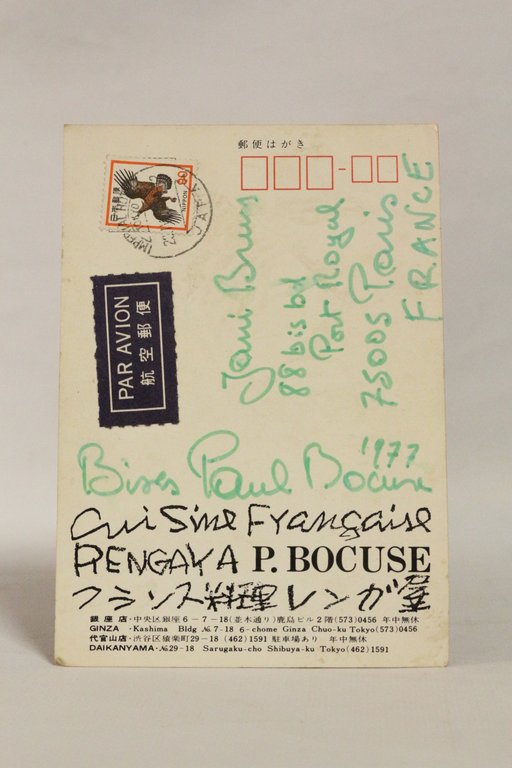 郵便はがき
90
NIPPON
JAPAN
PAR AVION
航空郵便
Yani Bruns
88 bis bd
Port Royal
75005 Paris
FRANCE
Bises Paul Bocuse '1977
Cuisine Française
RENGAYA P. BOCUSE
フランス料理レンガ屋
銀座店・中央区銀座6-7-18(並木通り)鹿島ビル2階(573)0456 年中無休
GINZA ・Kashima Bldg №7-18 6-chome Ginza Chuo-ku Tokyo(573)0456
代官山店・渋谷区猿楽町29-18 (462)1591 駐車場あり 年中無休
DAIKANYAMA・№29-18 Sarugaku-cho Shibuya-ku Tokyo(462)1591